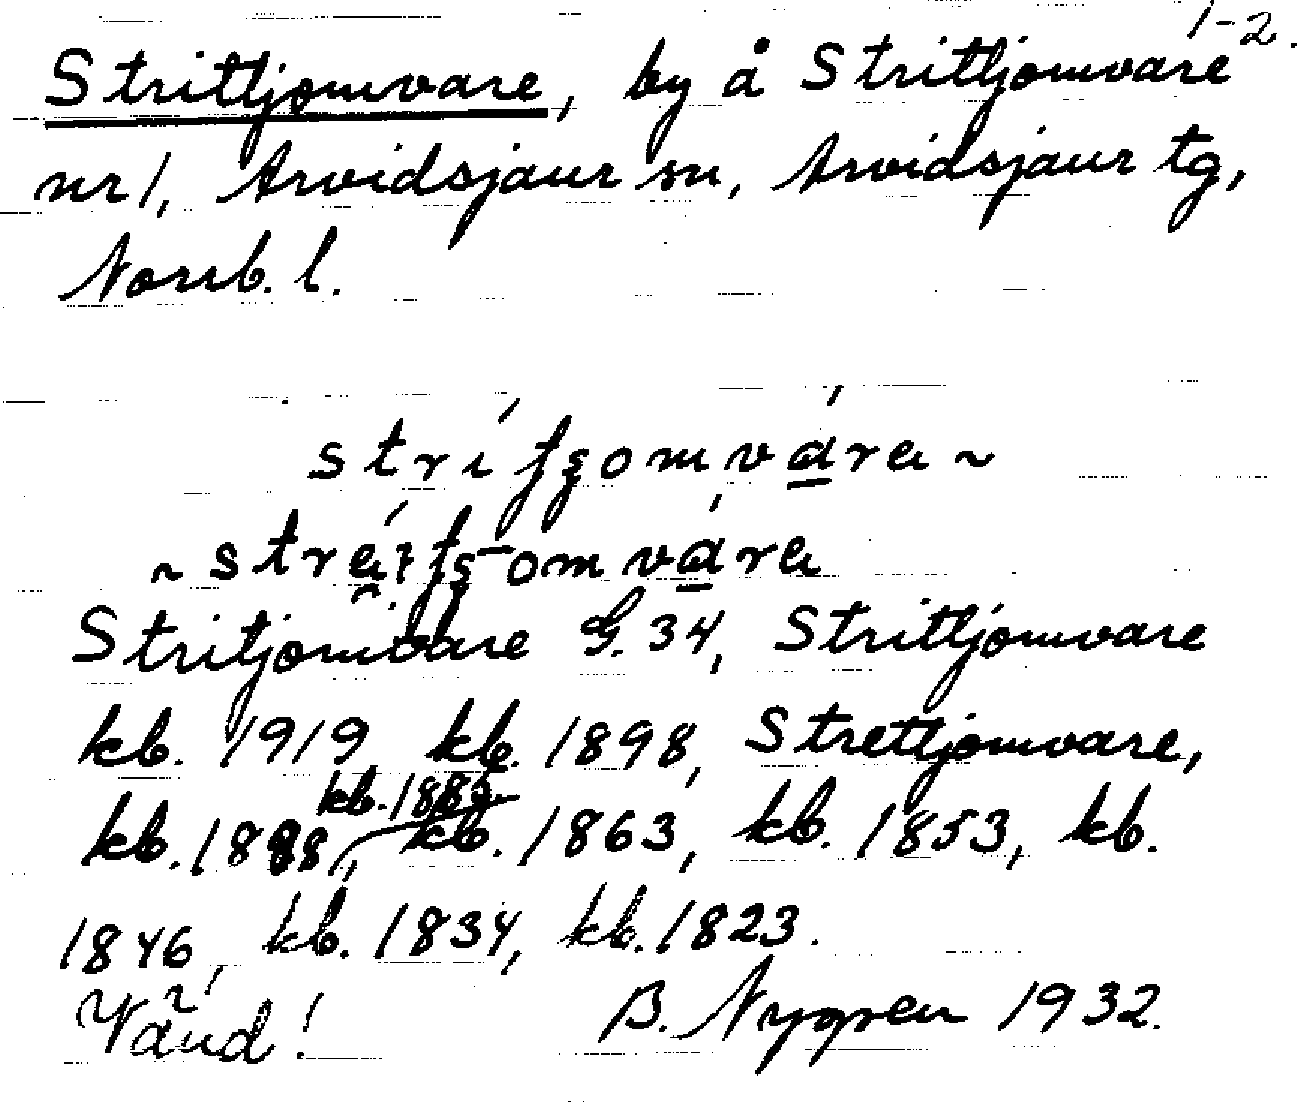 1-2.
Stritljomvare, by å Stritljomvare
nr 1, Arvidsjaur sn, Arvidsjaur tg,
Norrb. l.
Stritjomvare G. 34, Stritljomvare
kb. 1919, kb. 1898, Stretljomvare,
kb. 1888, kb. 1863, kb. 1853, kb.
1846, kb. 1834, kb. 1823.
Vänd! B. Nygren 1932.